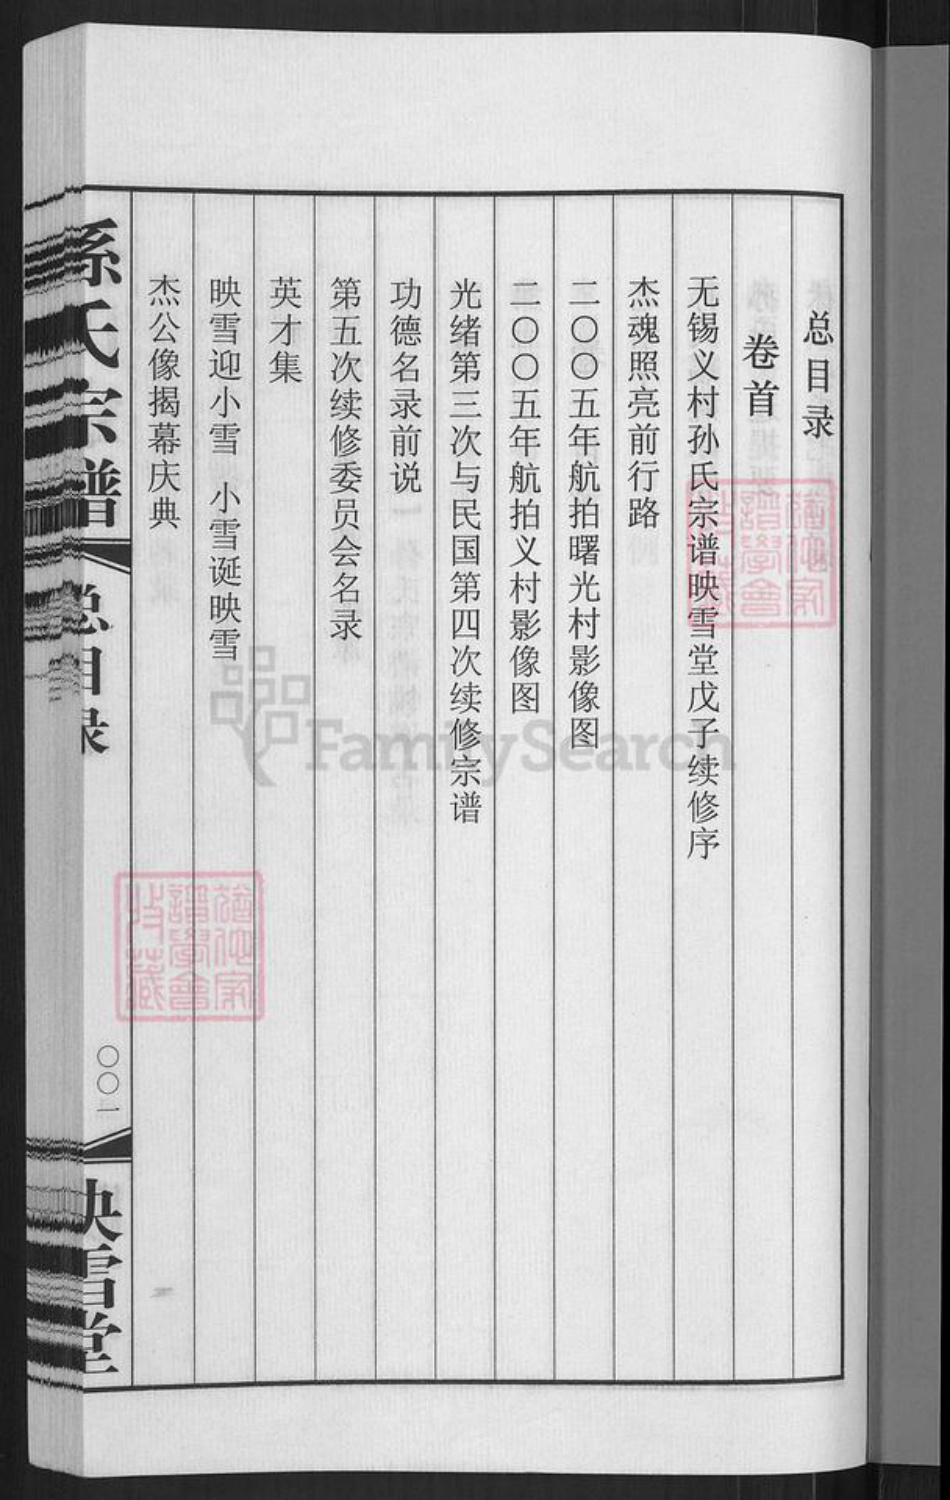 总目录
卷首
无锡义村孙氏宗谱映雪堂戊子续修序
杰魂照亮前行路
二〇〇五年航拍曙光村影像图
二〇〇五年航拍义村影像图
光绪第三次与民国第四次续修宗谱
功德名录前说
第五次续修委员会名录
英才集
映雪迎小雪 小雪诞映雪
杰公像揭幕庆典
孫氏宗譜
总目录
〇〇一
映雪堂
FamilySearch